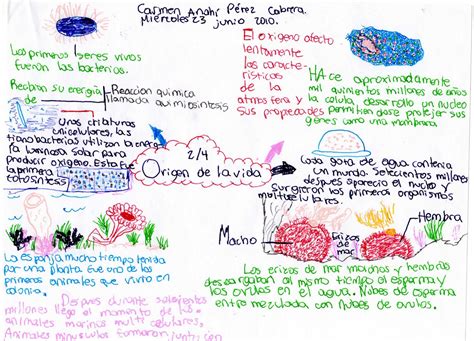 Carmen Anahí Pérez Cabrera.
Miércoles 23 junio 2010.
Los primeros seres vivos
fueron las bacterias.
Recibian su energia
de
Reacción quimica
llamada quimiosintesis
El oxigeno afecto
lentamente
las caracte-
risticas
de la
atmosfera y
sus propiedades
HAce aproximadamente
mil quinientos millones de años
la celula, desarrollo un nucleo
permitiendose proteger sus
genes como una membrana
Unas criaturas
unicelulares, las
cianobacterias utilizaban la energia
luminosa solar para
producir oxigeno. Esta fue
la primera
fotosintesis
2/4
Origen de la vida
Cada gota de agua contenia
un mundo. Seiscientos millones
después aparecio el nucleo y
Surgieron los primeros organismos
multicelulares.
Macho
Erizos
de
mar
Hembra
La esponja mucho tiempo tenida
por una planta fue uno de los
primeros animales que vivio en
colonia.
Los erizos de mar machos y hembras
descargaban al mismo tiempo el esperma y
los ovulos en el agua. Nubes de esperma
entre mezclada con nubes de ovulos.
Después durante seiscientos
millones llego el momento de los
animales marinos multicelulares.
Animales minusculos formaron